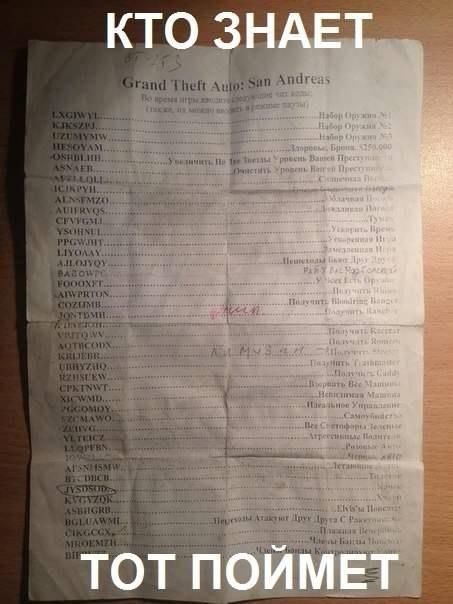 КТО ЗНАЕТ
Grand Theft Auto: San Andreas
Во время игры вводите следующие чит коды:
(также, их можно вводить в режиме паузы)
LXGIWYL Набор Оружия №1
KJKSZPJ Набор Оружия №2
UZUMYMW Набор Оружия №3
HESOYAM Здоровье, Броня, $250.000
OSRBLHH Увеличить На Две Звезды Уровень Вашей
ASNAEB Очистить Уровень Вашей
AFZLLQLL Солнечная
ICIKPYH
ALNSFMZO Облачная
AUIFRVQS Дождливая
CFVFGMJ Туман
YSOHNUL Ускорить Время
PPGWJHT Ускоренная Игра
LIYOAAY Замедленная Игра
AJLOJYQY Пешеходы Бьют Друг Друга
BAGOWPG
FOOOXFT У Всех Есть Оружие
AIWPRTON Получить Rhino
CQZIJMB Получить Bloodring Banger
JQNTDMH Получить Rancher
VPJTQWV Получить Racecar
AQTBCODX Получить Romero
KRIJEBR Получить
UBHYZHQ Получить Trashmaster
RZHSUEW Получить Caddy
CPKTNWT Взорвать Все Машины
XICWMD Невидимая Машина
PGGOMOY Идеальное Управление
SZCMAWO Самоубийство
ZEIIVG Все Светофоры Зеленые
YLTEICZ Агрессивные Водители
LLQPFBN Розовые Авто
Черные АВТО
AFSNHSMW Летающие
BTCDBCB
JYSDSOD
KVGYZQK
ASBHGRB Elvis'ы Повсюду
BGLUAWML Пешеходы Атакуют Друг Друга С
CIKGCGX Пляжная Вечеринка
MROEMZH Члены Банды Повсюду
Члены Банды
ТОТ ПОЙМЕТ